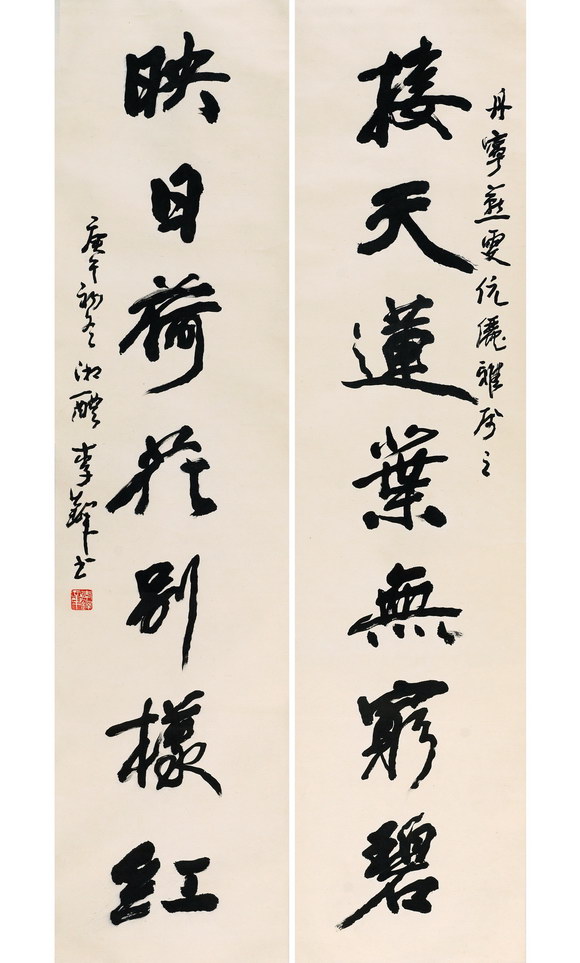 丹寧燕雯伉儷雅屬之
接天蓮葉無窮碧
映日荷花別樣紅
庚午初冬湘醴李鐸書